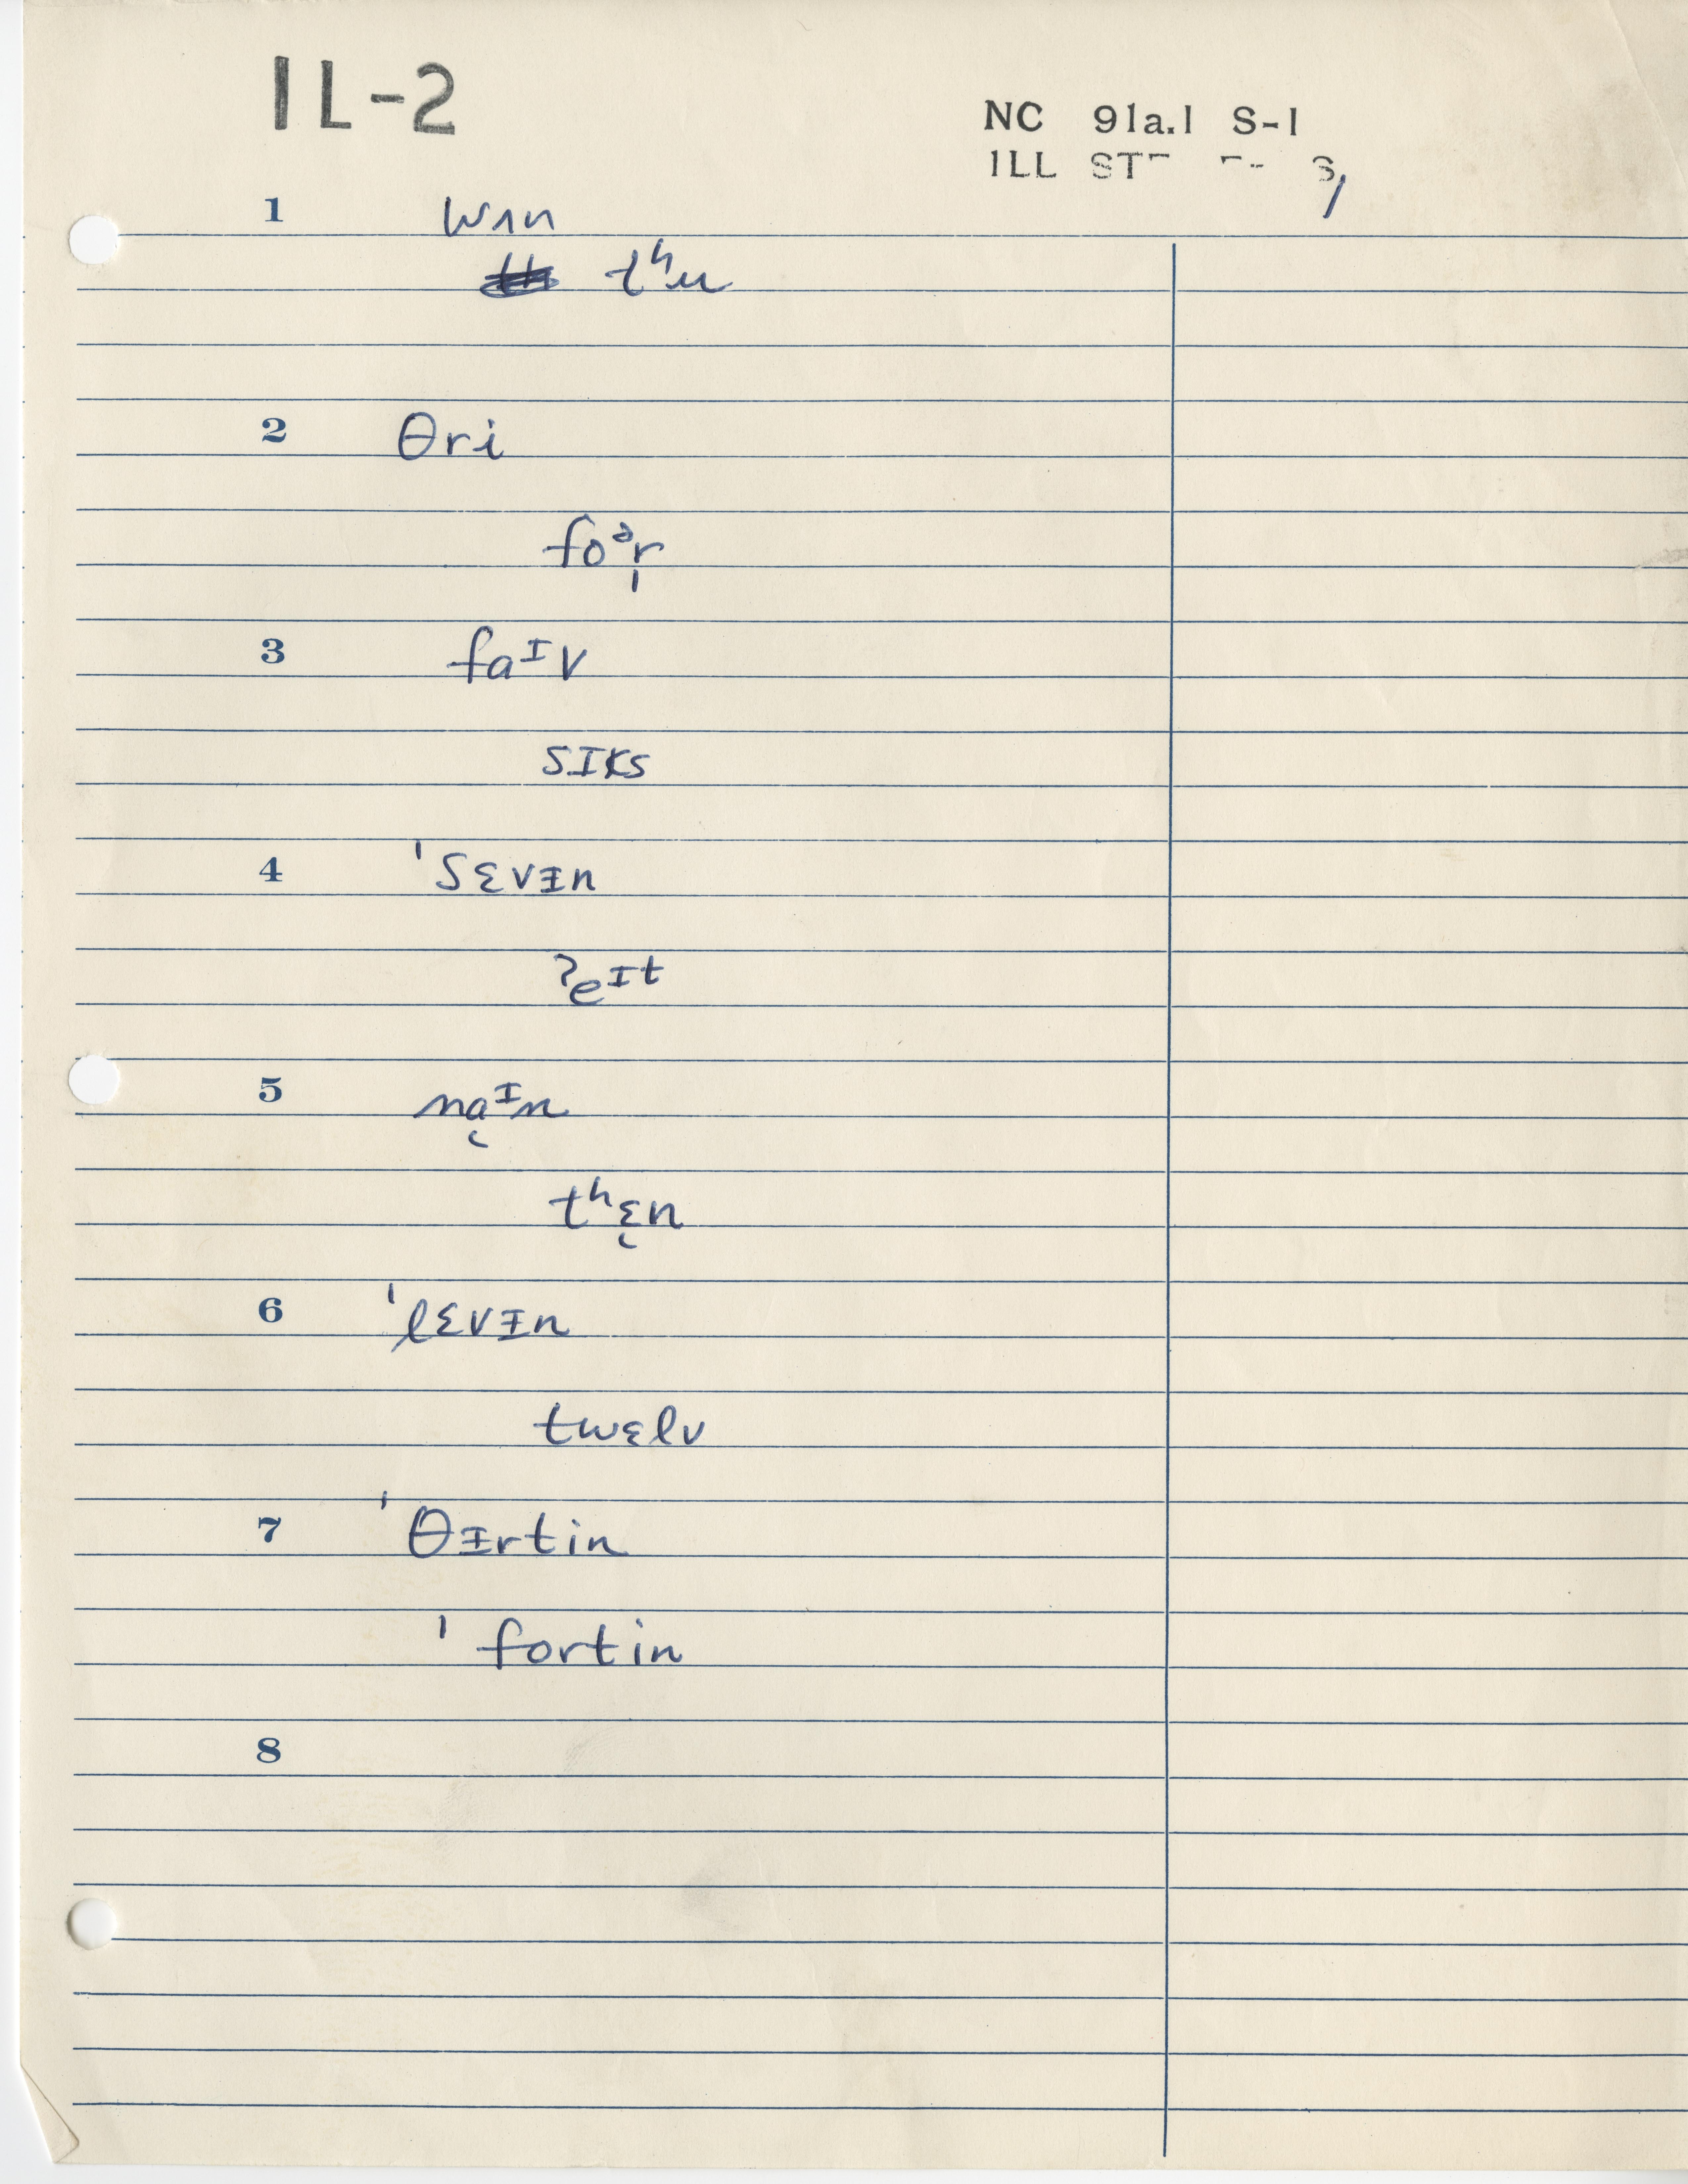 IL-2
NC 91a.1 S-1
ILL
1 wʌn
tʰu
2 θri
foᵊr̩
3 faᶦv
sɪks
4 ˈsɛvᵻn
ʔeᶦt
5 na̜ᶦn
tʰɛ̜n
6 ˈlɛvᵻn
twɛlv
7 ˈθᵻrtin
ˈfortin
8